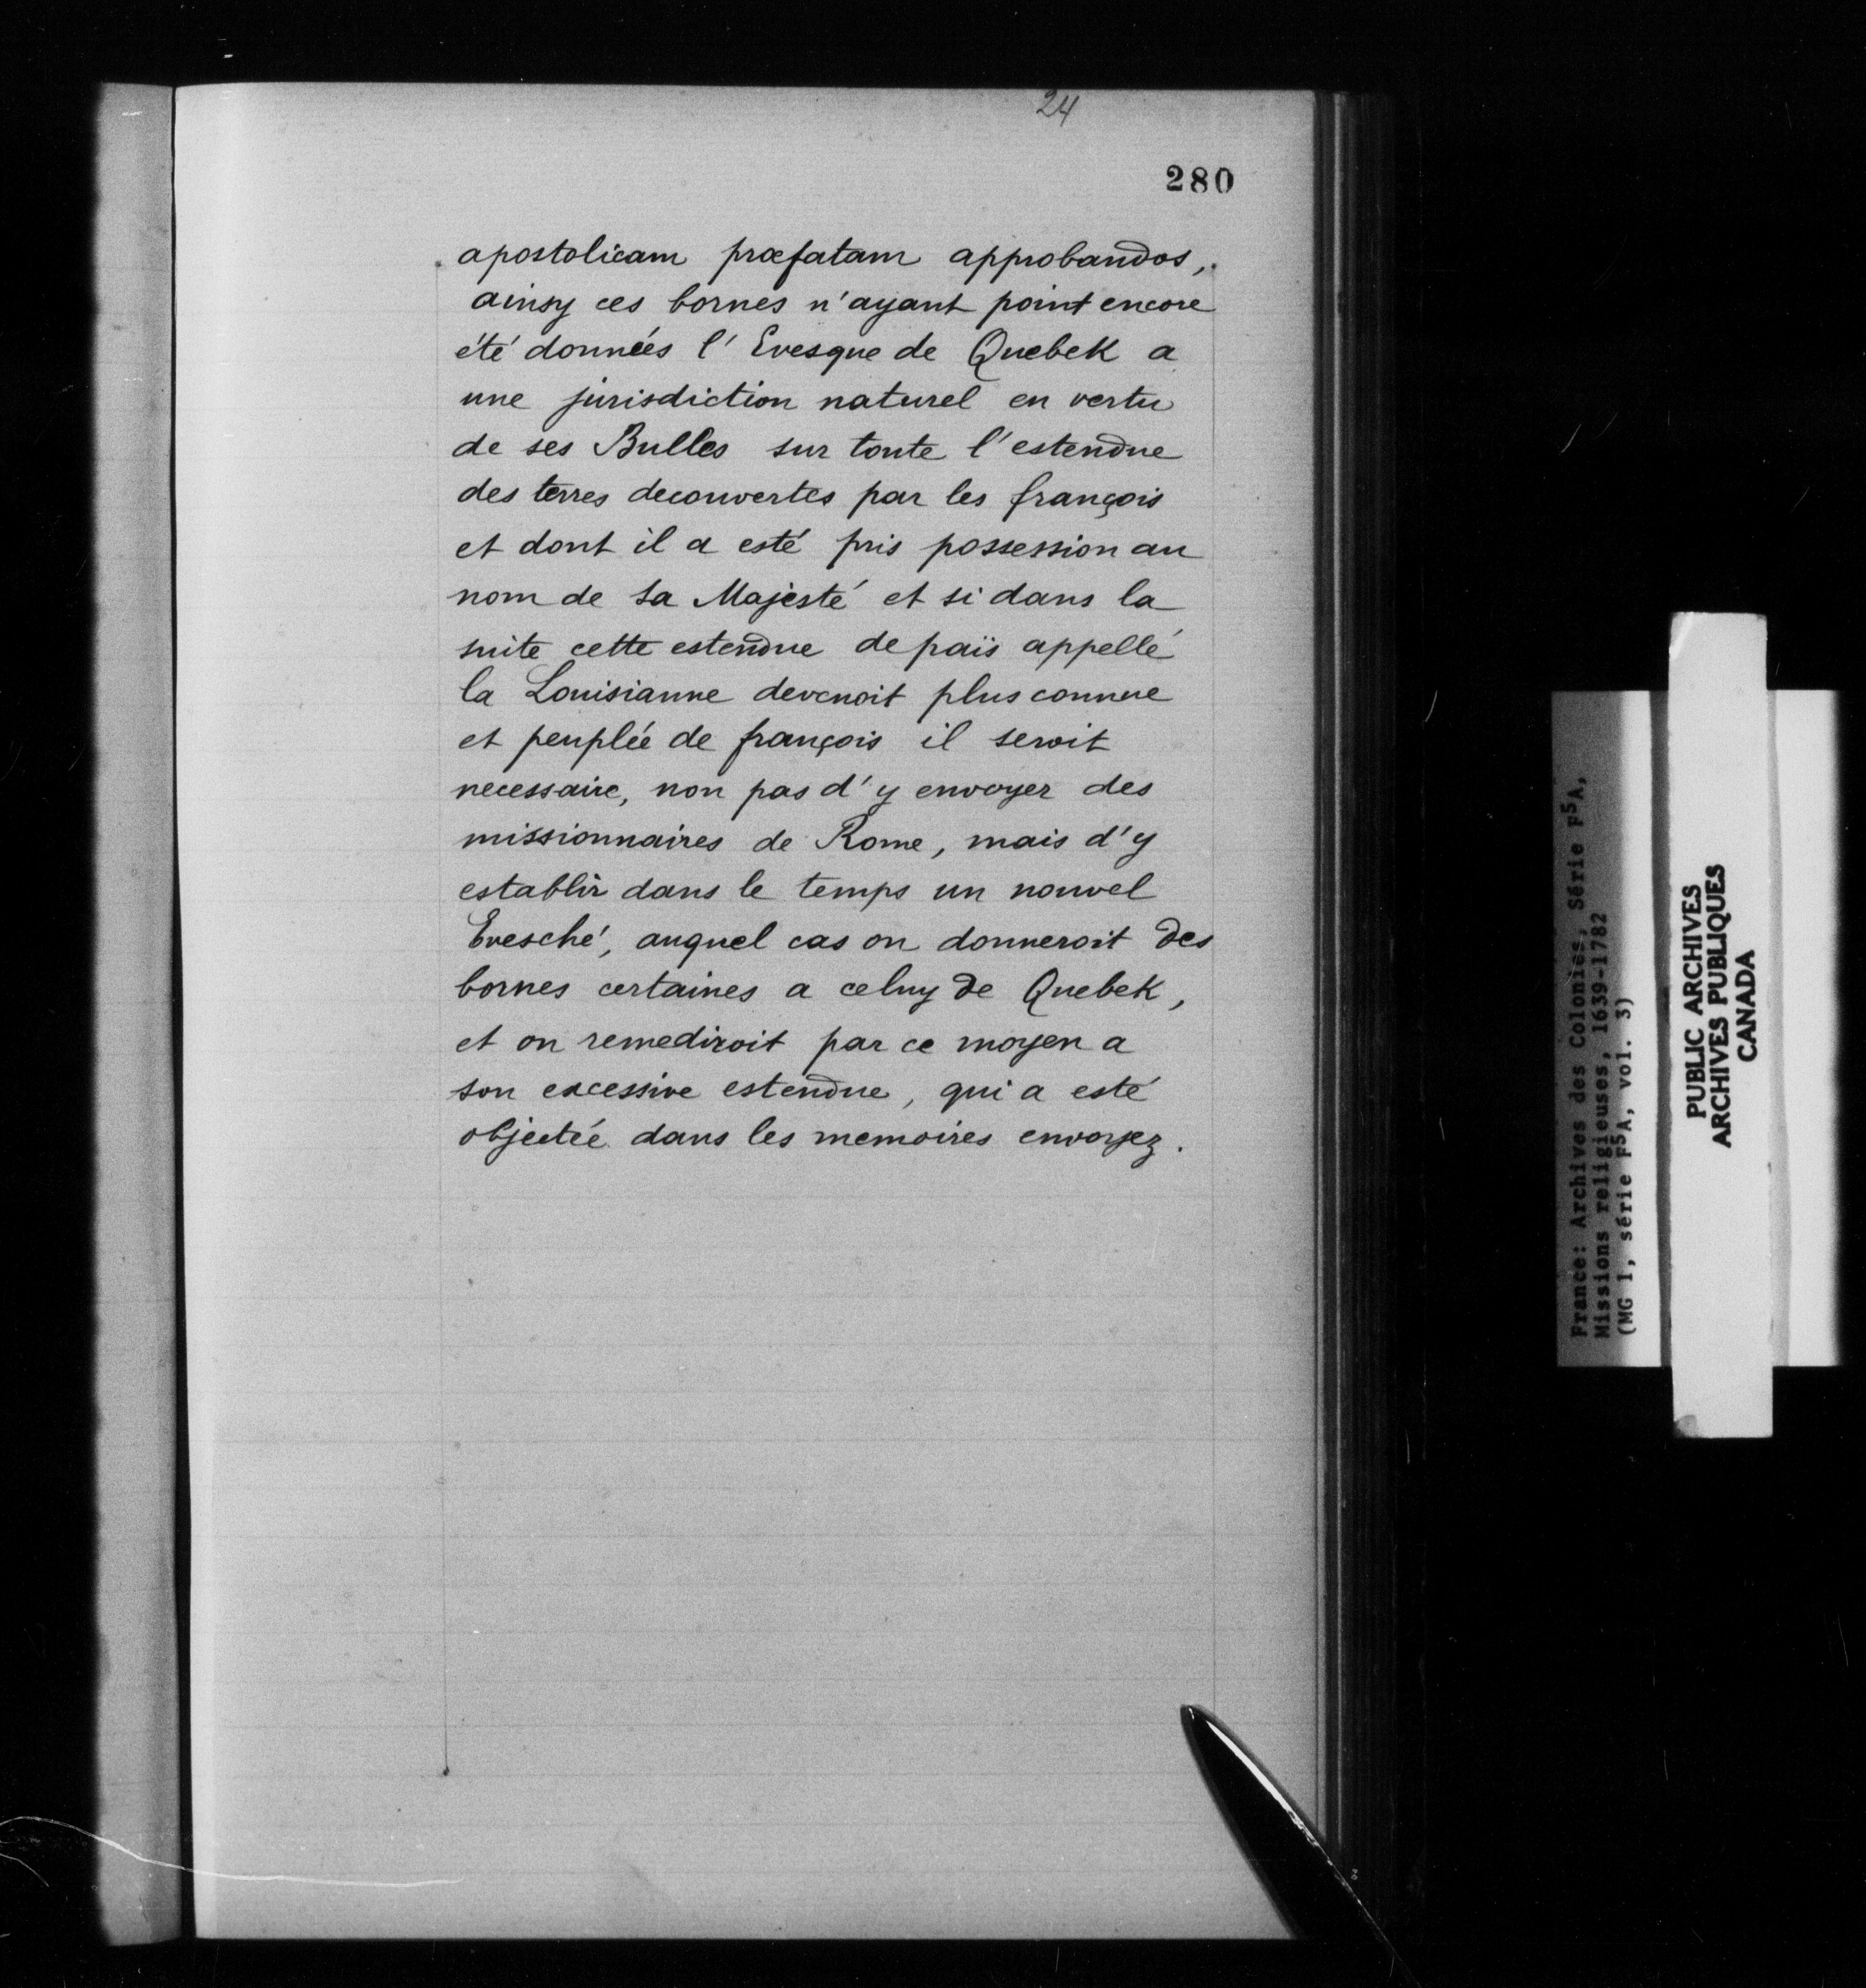 24
280
apostolicam præfatam approbandos,
ainsy ces bornes n'ayant point encore
été données l'Evesque de Quebek a
une jurisdiction naturel en vertu
de ses Bulles sur toute l'estendue
des terres decouvertes par les françois
et dont il a esté pris possession au
nom de sa Majesté et si dans la
suite cette estendue de païs appellé
la Louisianne devenoit plus connue
et peuplée de françois il seroit
necessaire, non pas d'y envoyer des
missionnaires de Rome, mais d'y
establir dans le temps un nouvel
Evesché, auquel cas on donneroit des
bornes certaines a celuy de Quebek,
et on remediroit par ce moyen a
son excessive estendue, qui a esté
objectée dans les memoires envoyez.
France: Archives des Colonies, Série F5A,
Missions religieuses, 1639-1782
(MG 1, série F5A, vol. 3)
PUBLIC ARCHIVES
ARCHIVES PUBLIQUES
CANADA